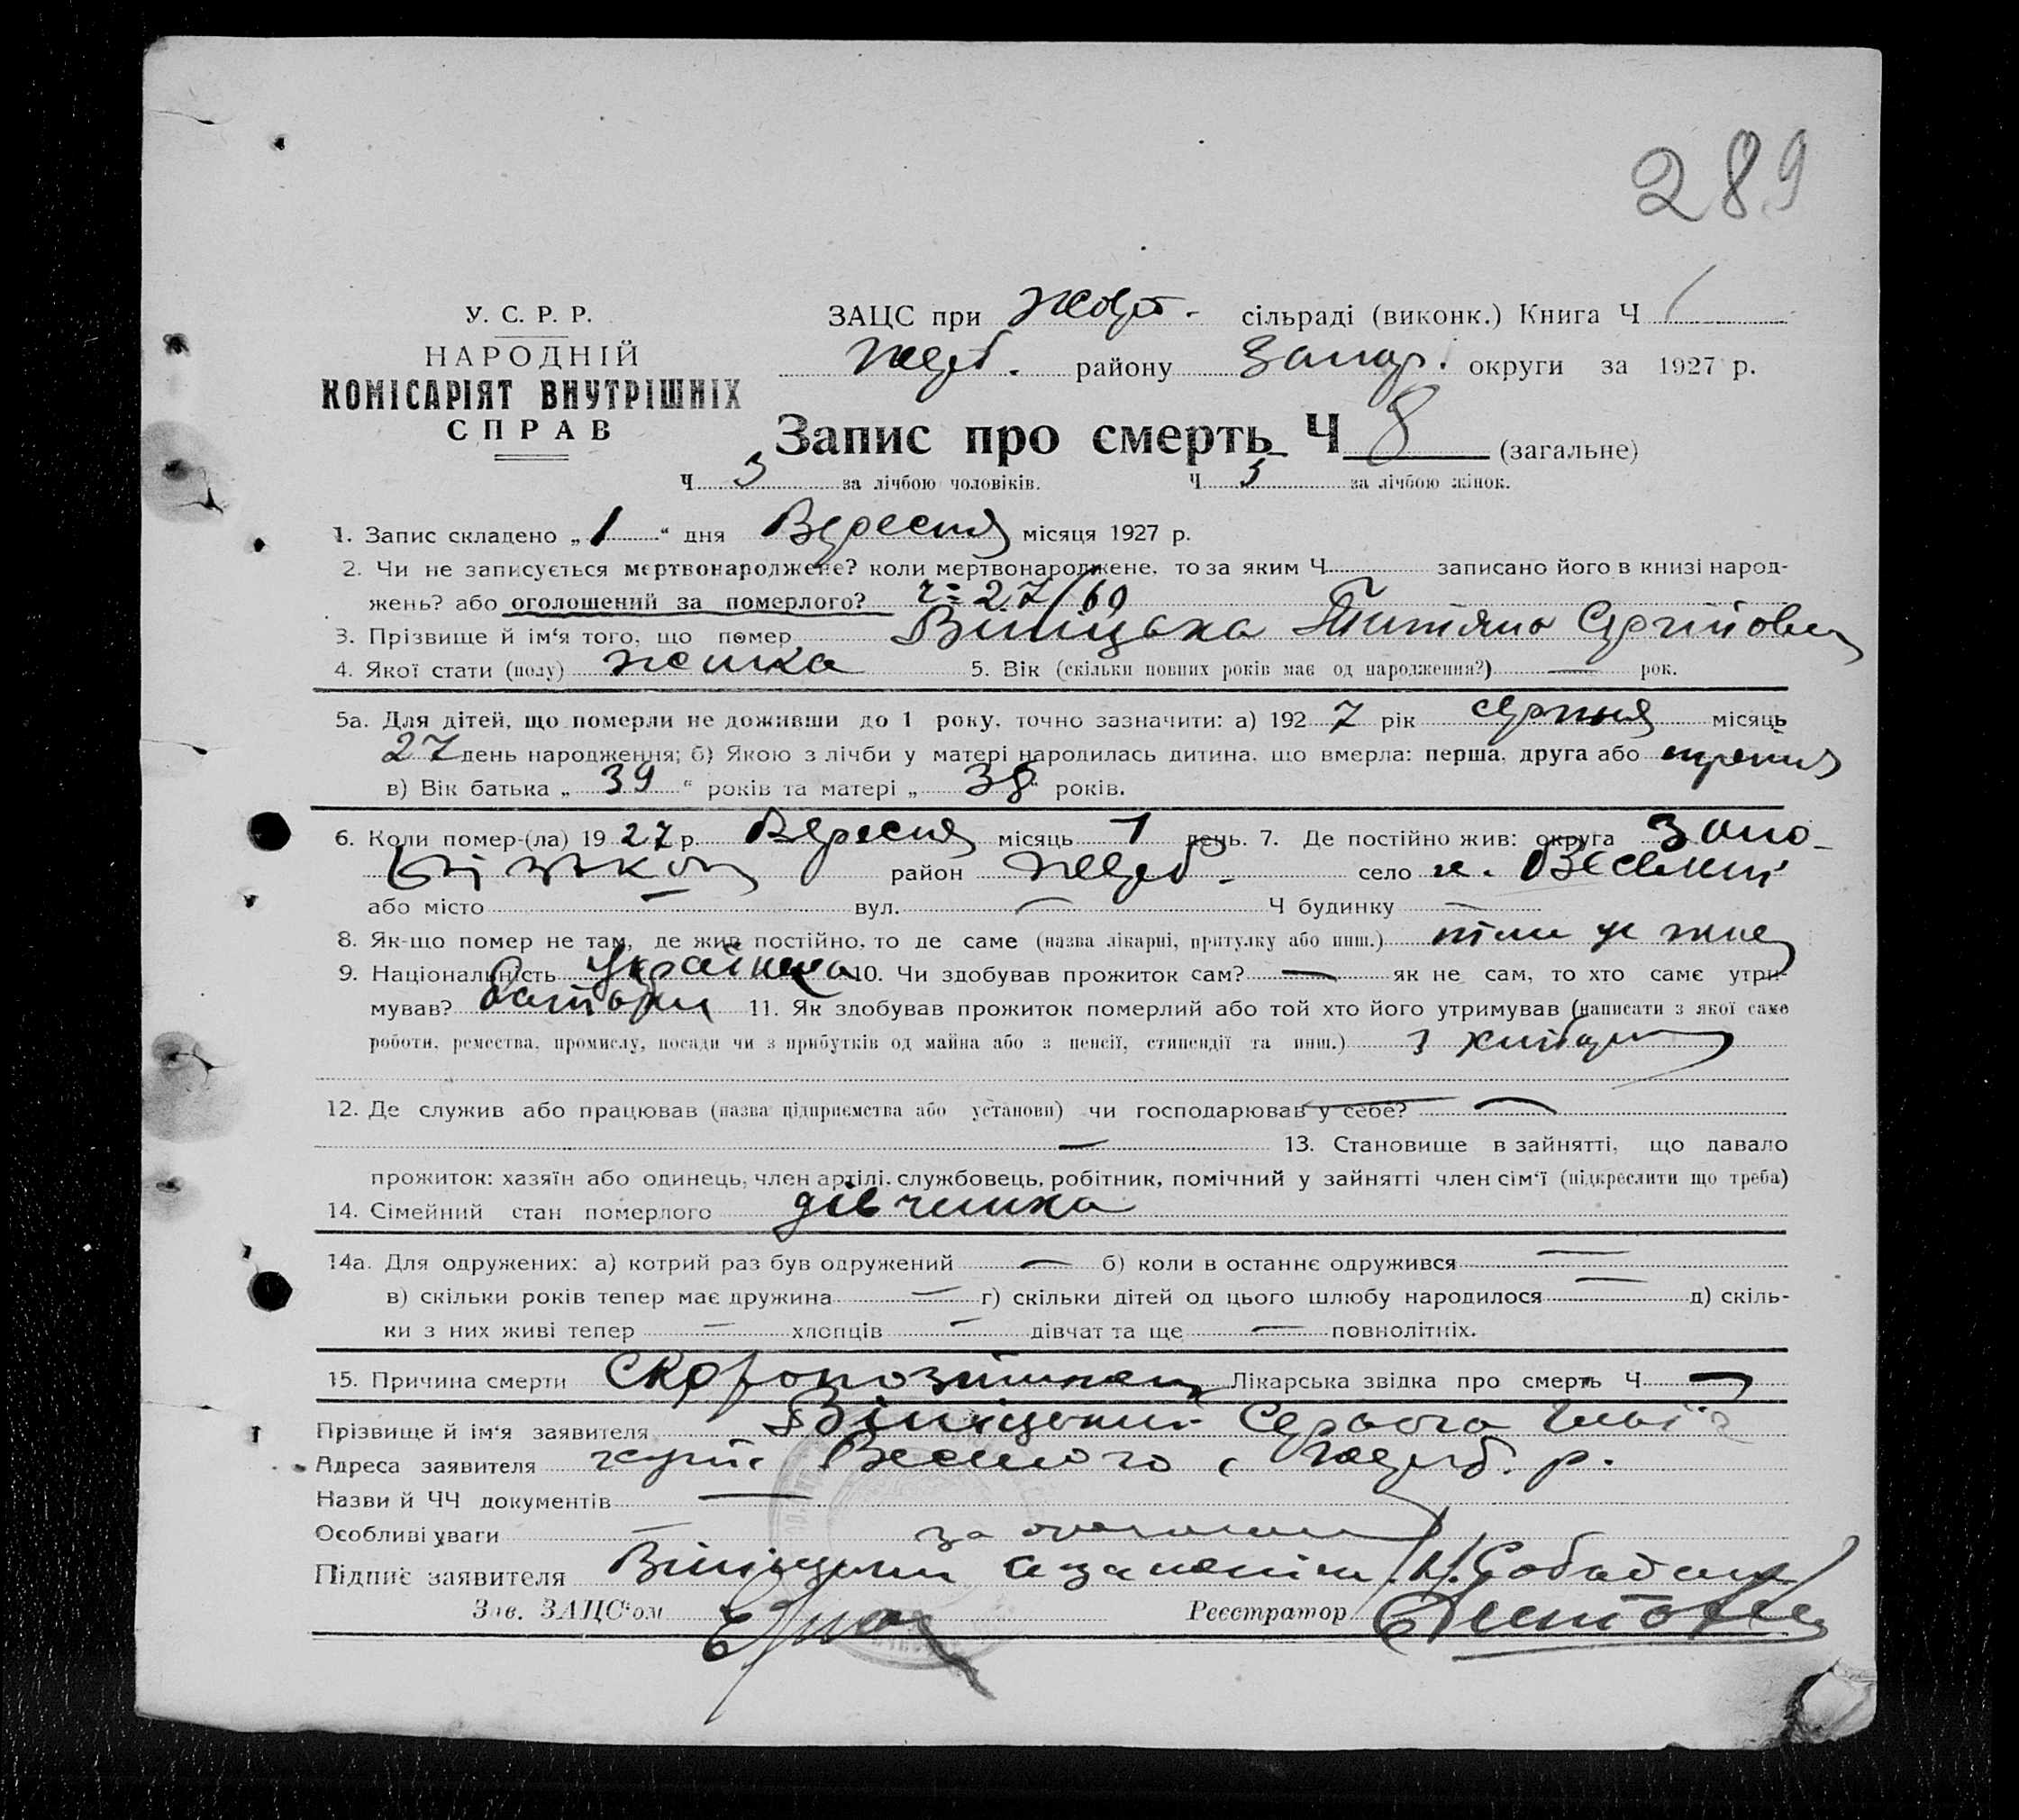 289
У. С. Р. Р.
НАРОДНІЙ
КОМІСАРІЯТ ВНУТРІШНІХ
СПРАВ
ЗАЦС при Жереб. сільраді (виконк.) Книга Ч 1
Жереб. району Запор. округи за 1927 р.
Запис про смерть Ч 8 (загальне)
Ч 3 за лічбою чоловіків. Ч 5 за лічбою жінок.
1. Запис складено „ 1 “ дня Вересня місяця 1927 р.
2. Чи не записується мертвонароджене? коли мертвонароджене, то за яким Ч записано його в книзі народ-
жень? або оголошений за померлого? ч = 27/60
3. Прізвище й ім‘я того, що помер Вініцька Титяна Сергіївна
4. Якої стати (полу) жінка 5. Вік (скільки повних років має од народження?) — рок.
5а. Для дітей, що померли не доживши до 1 року, точно зазначити: а) 192 7 рік серпня місяць
27 день народження; б) Якою з лічби у матері народилась дитина, що вмерла: перша, друга або третя
в) Вік батька „ 39 “ років та матері „ 38 “ років.
6. Коли помер-(ла) 19 27 р. Вересня місяць 1 день. 7. Де постійно жив: округа Запо-
різьк район Жереб. село х. Веселий
або місто — вул. — Ч будинку —
8. Як-що помер не там, де жив постійно, то де саме (назва лікарні, притулку або инш.) там де жив
9. Національність Українка 10. Чи здобував прожиток сам? — як не сам, то хто саме утри-
мував? батьки 11. Як здобував прожиток померлий або той хто його утримував (написати з якої саме
роботи, ремества, промислу, посади чи з прибутків од майна або з пенсії, стипендії та инш.) з
12. Де служив або працював (назва підприємства або установи) чи господарював у себе? —
— 13. Становище в зайнятті, що давало
прожиток: хазяїн або одинець, член артілі, службовець, робітник, помічний у зайнятті член сім‘ї (підкреслити що треба)
14. Сімейний стан померлого дівчинка
14а. Для одружених: а) котрий раз був одружений — б) коли в останнє одружився —
в) скільки років тепер має дружина — г) скільки дітей од цього шлюбу народилося — д) скіль-
ки з них живі тепер — хлопців — дівчат та ще — повнолітніх.
15. Причина смерти Лікарська звідка про смерть Ч —
Прізвище й ім‘я заявителя Вініцький
Адреса заявителя хут. Веселого, Жереб. р.
Назви й ЧЧ документів —
Особливі уваги —
Підпис заявителя Вініцький
Зав. ЗАЦС‘ом Реєстратор